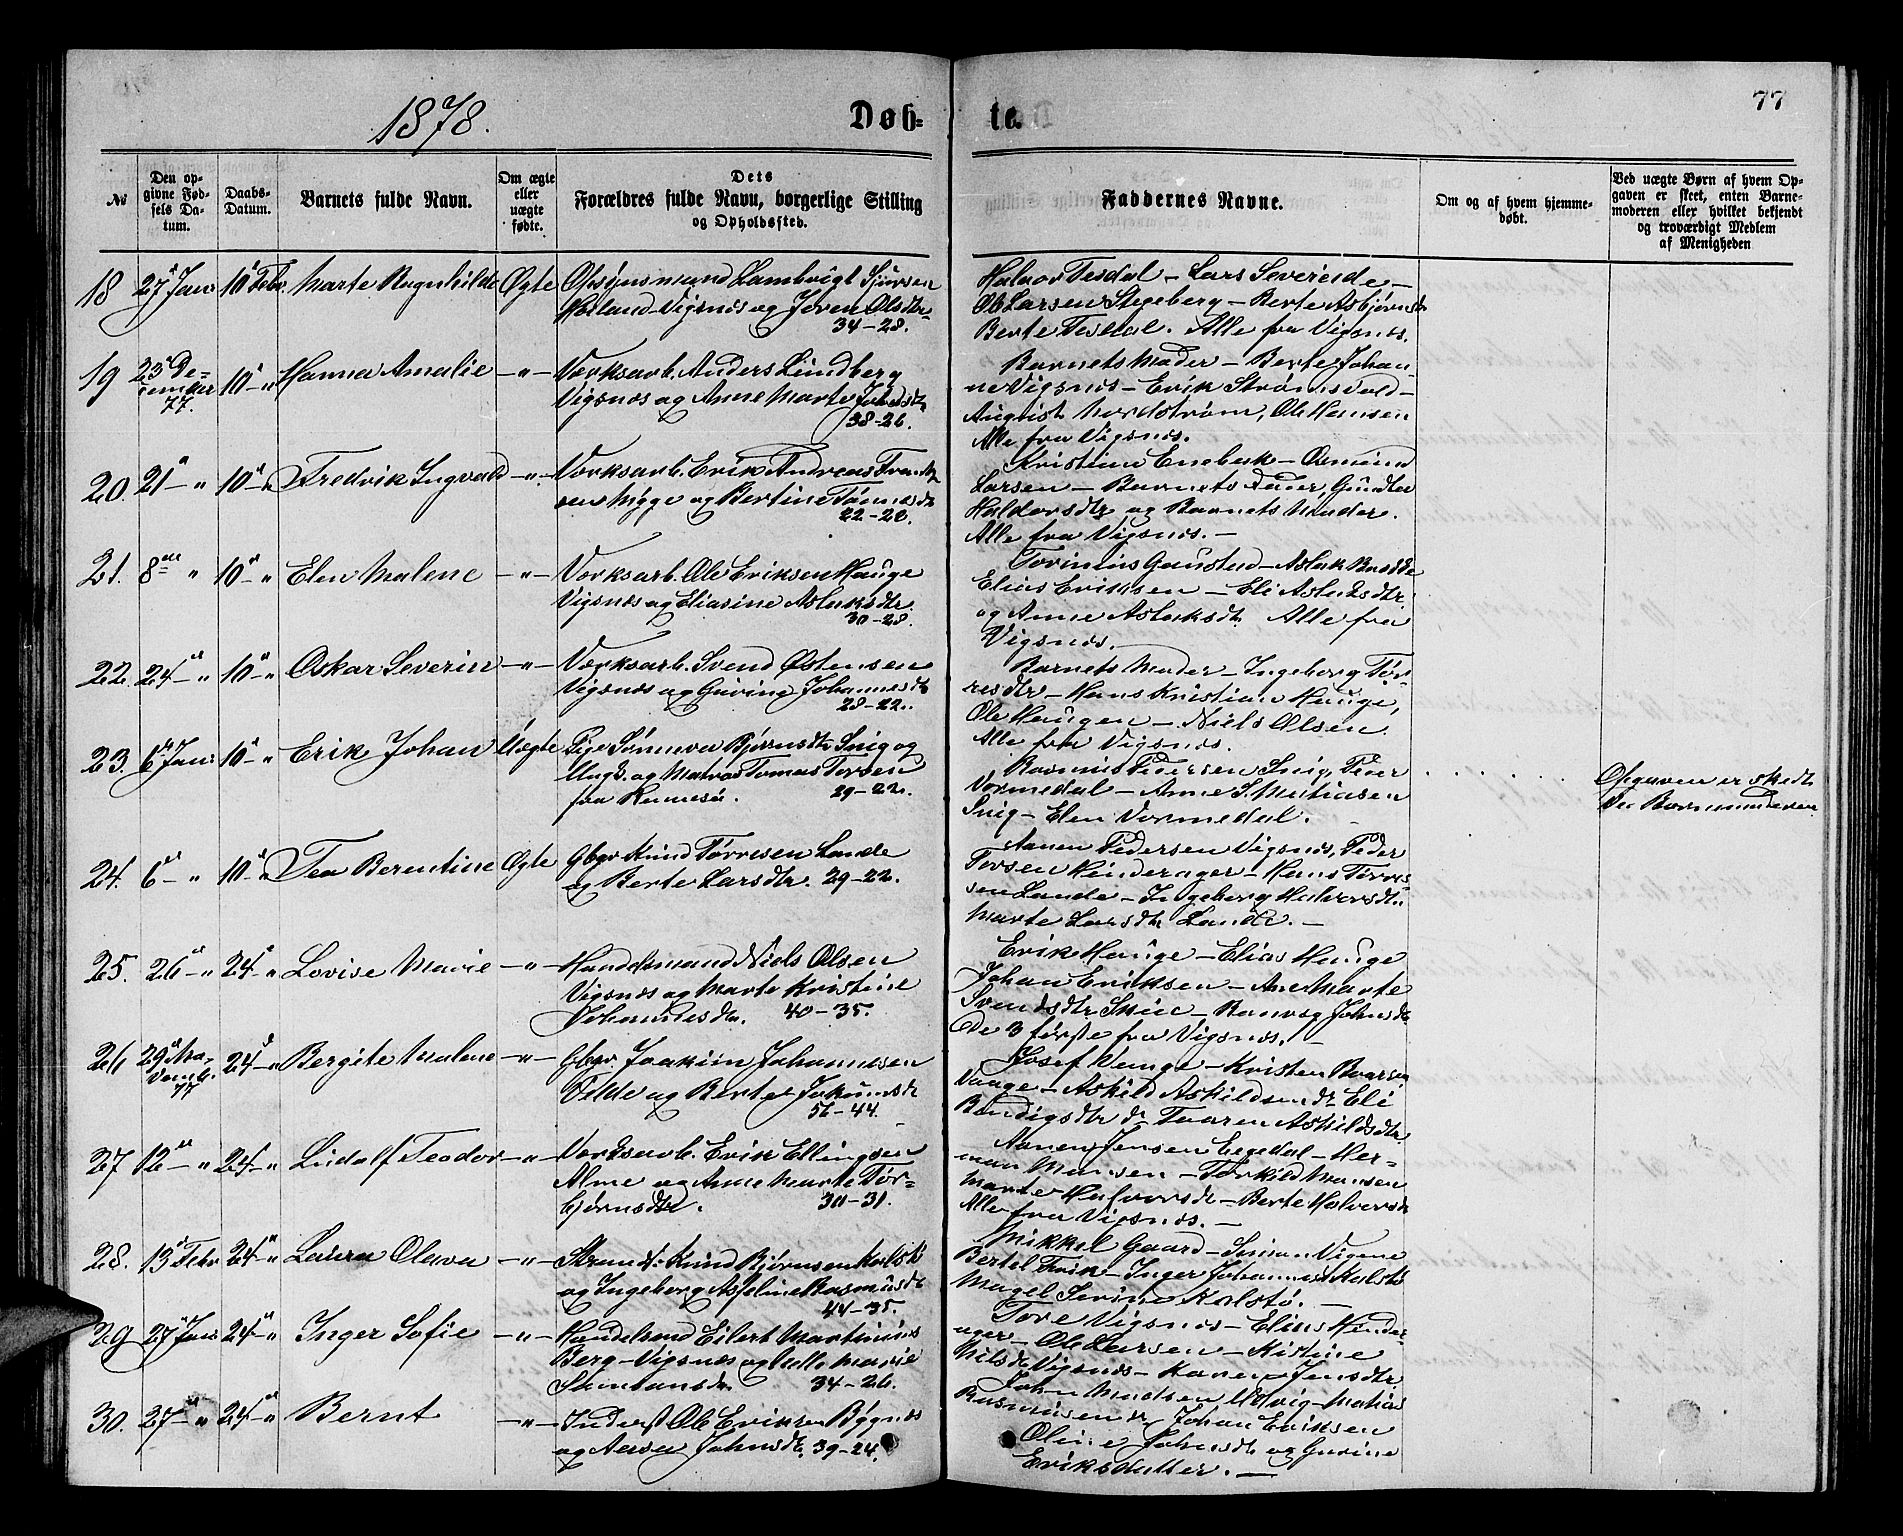 1878.
Døb-
te.
77
№
Den op-
givne Fød-
sels Da-
tum.
Daabs-
Datum.
Barnets fulde Navn.
Om ægte
eller
uægte
fødte.
Dets
Forældres fulde Navn, borgerlige Stilling
og Opholdssted.
Faddernes Navne.
Om og af hvem hjemme-
døbt.
Ved uægte Børn af hvem Op-
gaven er skeet, enten Barne-
moderen eller hvilket bekjendt
og troværdigt Medlem
af Menigheden
18 27 Jan 10 Febr. Marte Ragnhilde Ægte Opsynsmand Lambrigt Sjursen
Høiland Vigsnes og Joren Olsdtr
34-28.
Halvor Tesdal - Lars Severeide -
Ole Larsen Stegeberg - Berte Asbjørnsdtr
Berte Tesdal. Alle fra Vigsnes.
19 23 De-
cember
77. 10 - " Hanna Amalie - " - Værksarb. Anders Lundberg
Vigsnes og Anne Marte Johnsdtr
38-26.
Barnets Moder - Berte Johan-
ne Vigsnes - Erik Strømsvold -
August Nordstrøm, Ole Hansen
Alle fra Vigsnes.
20. 21 - " 10 - " Fredrik Ingvald - " - Værksarb. Erik Andreas Frantz
sen Mygge og Bertine Tønnesdtr
22-28.
Kristian Enebak - Osmund
Larsen - Barnets Fader, Gundla
Haldorsdtr og Barnets Moder.
Alle fra Vigsnes. -
21. 8de " 10 - " Elen Malene - " - Værksarb. Ole Eriksen Hauge
Vigsnes og Eliasine Aslaksdtr.
30-28.
Torinius Gaustad - Aslak Bredde
Elias Eriksen - Eli Aslaksdtr
og Anne Aslaksdtr Alle fra
Vigsnes.
22. 24 - " 10 - " Oskar Severin - " - Værksarb. Svend Østensen
Vigsnes og Gurine Johannesdtr
28-22.
Barnets Moder - Ingeborg Tør-
resdtr - Hans Kristian Hauge,
Ole Haugen - Niels Olsen.
Alle fra Vigsnes.
23. 6 Jan 10 - " Erik Johan Uægte Pige Sønneva Bjørnsdtr Snig og
Ungk. og Matros Tomas Torsen
fra Rennesø. 29-22.
Rasmus Pedersen Snig, Peder
Vormedal - Anne S. Matiasen
Snig - Elen Vormedal.
Opgaven er skedt
ved Barnemoderen
24. 6 - " 10 - " Tea Berentine Ægte Gbgr Knud Tørresen Lande
og Berte Larsdtr. 29-22.
Aanen Pedersen Vigsnes, Peder
Torsen Hinderager - Hans Tørres-
sen Lande - Ingeborg Halvorsdtr
Marte Larsdtr Lande. -
25. 26 - " 24 - " Lovise Marie - " - Handelsmand Niels Olsen
Vigsnes og Marte Kristine
Johannesdtr. 40-35.
Erik Hauge - Elias Hauge
Johan Eriksen - Ane Marte
Svendsdtr - Ranveg Johnsdtr
De 3 første fra Vigsnes. -
26 29 No-
vemb.
77 24 - " Bergite Malene - " - Gbgr. Joakim Johannesen
og Berte Jokumsdtr
51-44.
Josef Vaage - Kristen
Vaage - Askild Askildsen Eli
Bendigsdtr Taaren Askildsdtr
27 12 - " 24 - " Ludolf Teodor - " - Værksarb. Erik Ellingsen
Alme og Anne Marte Tor-
bjørnsdtr. 30-31.
Aanen Jensen Egedal - Her-
man Monsen - Torkild Monsen
Marte Halvorsdtr - Berte Halvorsdtr
Alle fra Vigsnes. -
28. 13 Febr 24 - " Laura Olava - " - Strands. Knud Bjørnsen Kalstø
og Ingeborg Asseline Rasmusdtr
44-35.
Mikkel Gaard - Simon Vigene
Bertel - Inger Johannesdtr Kalstø
Magel Serine Kalstø. -
29 27 Jan 24 - " Inger Sofie - " - Handelsmd Eilert Martinius
Berg - Vigsnes og Marie
34-26.
Tore Vigsnes - Elias Hinder-
ager - Ole Larsen - Kistine
Nilsdtr Vigsnes - Karen Jensdtr
30. 27 - " 24 - " Bernt - " - Inderst Ole Eriksen Bygnes
og Aasa Johnsdtr. 39-24.
John Madsen Udvig - Matias
Rasmusen Johan Eriksen
Oline Johnsdtr og Gurine
Eriksdatter. -